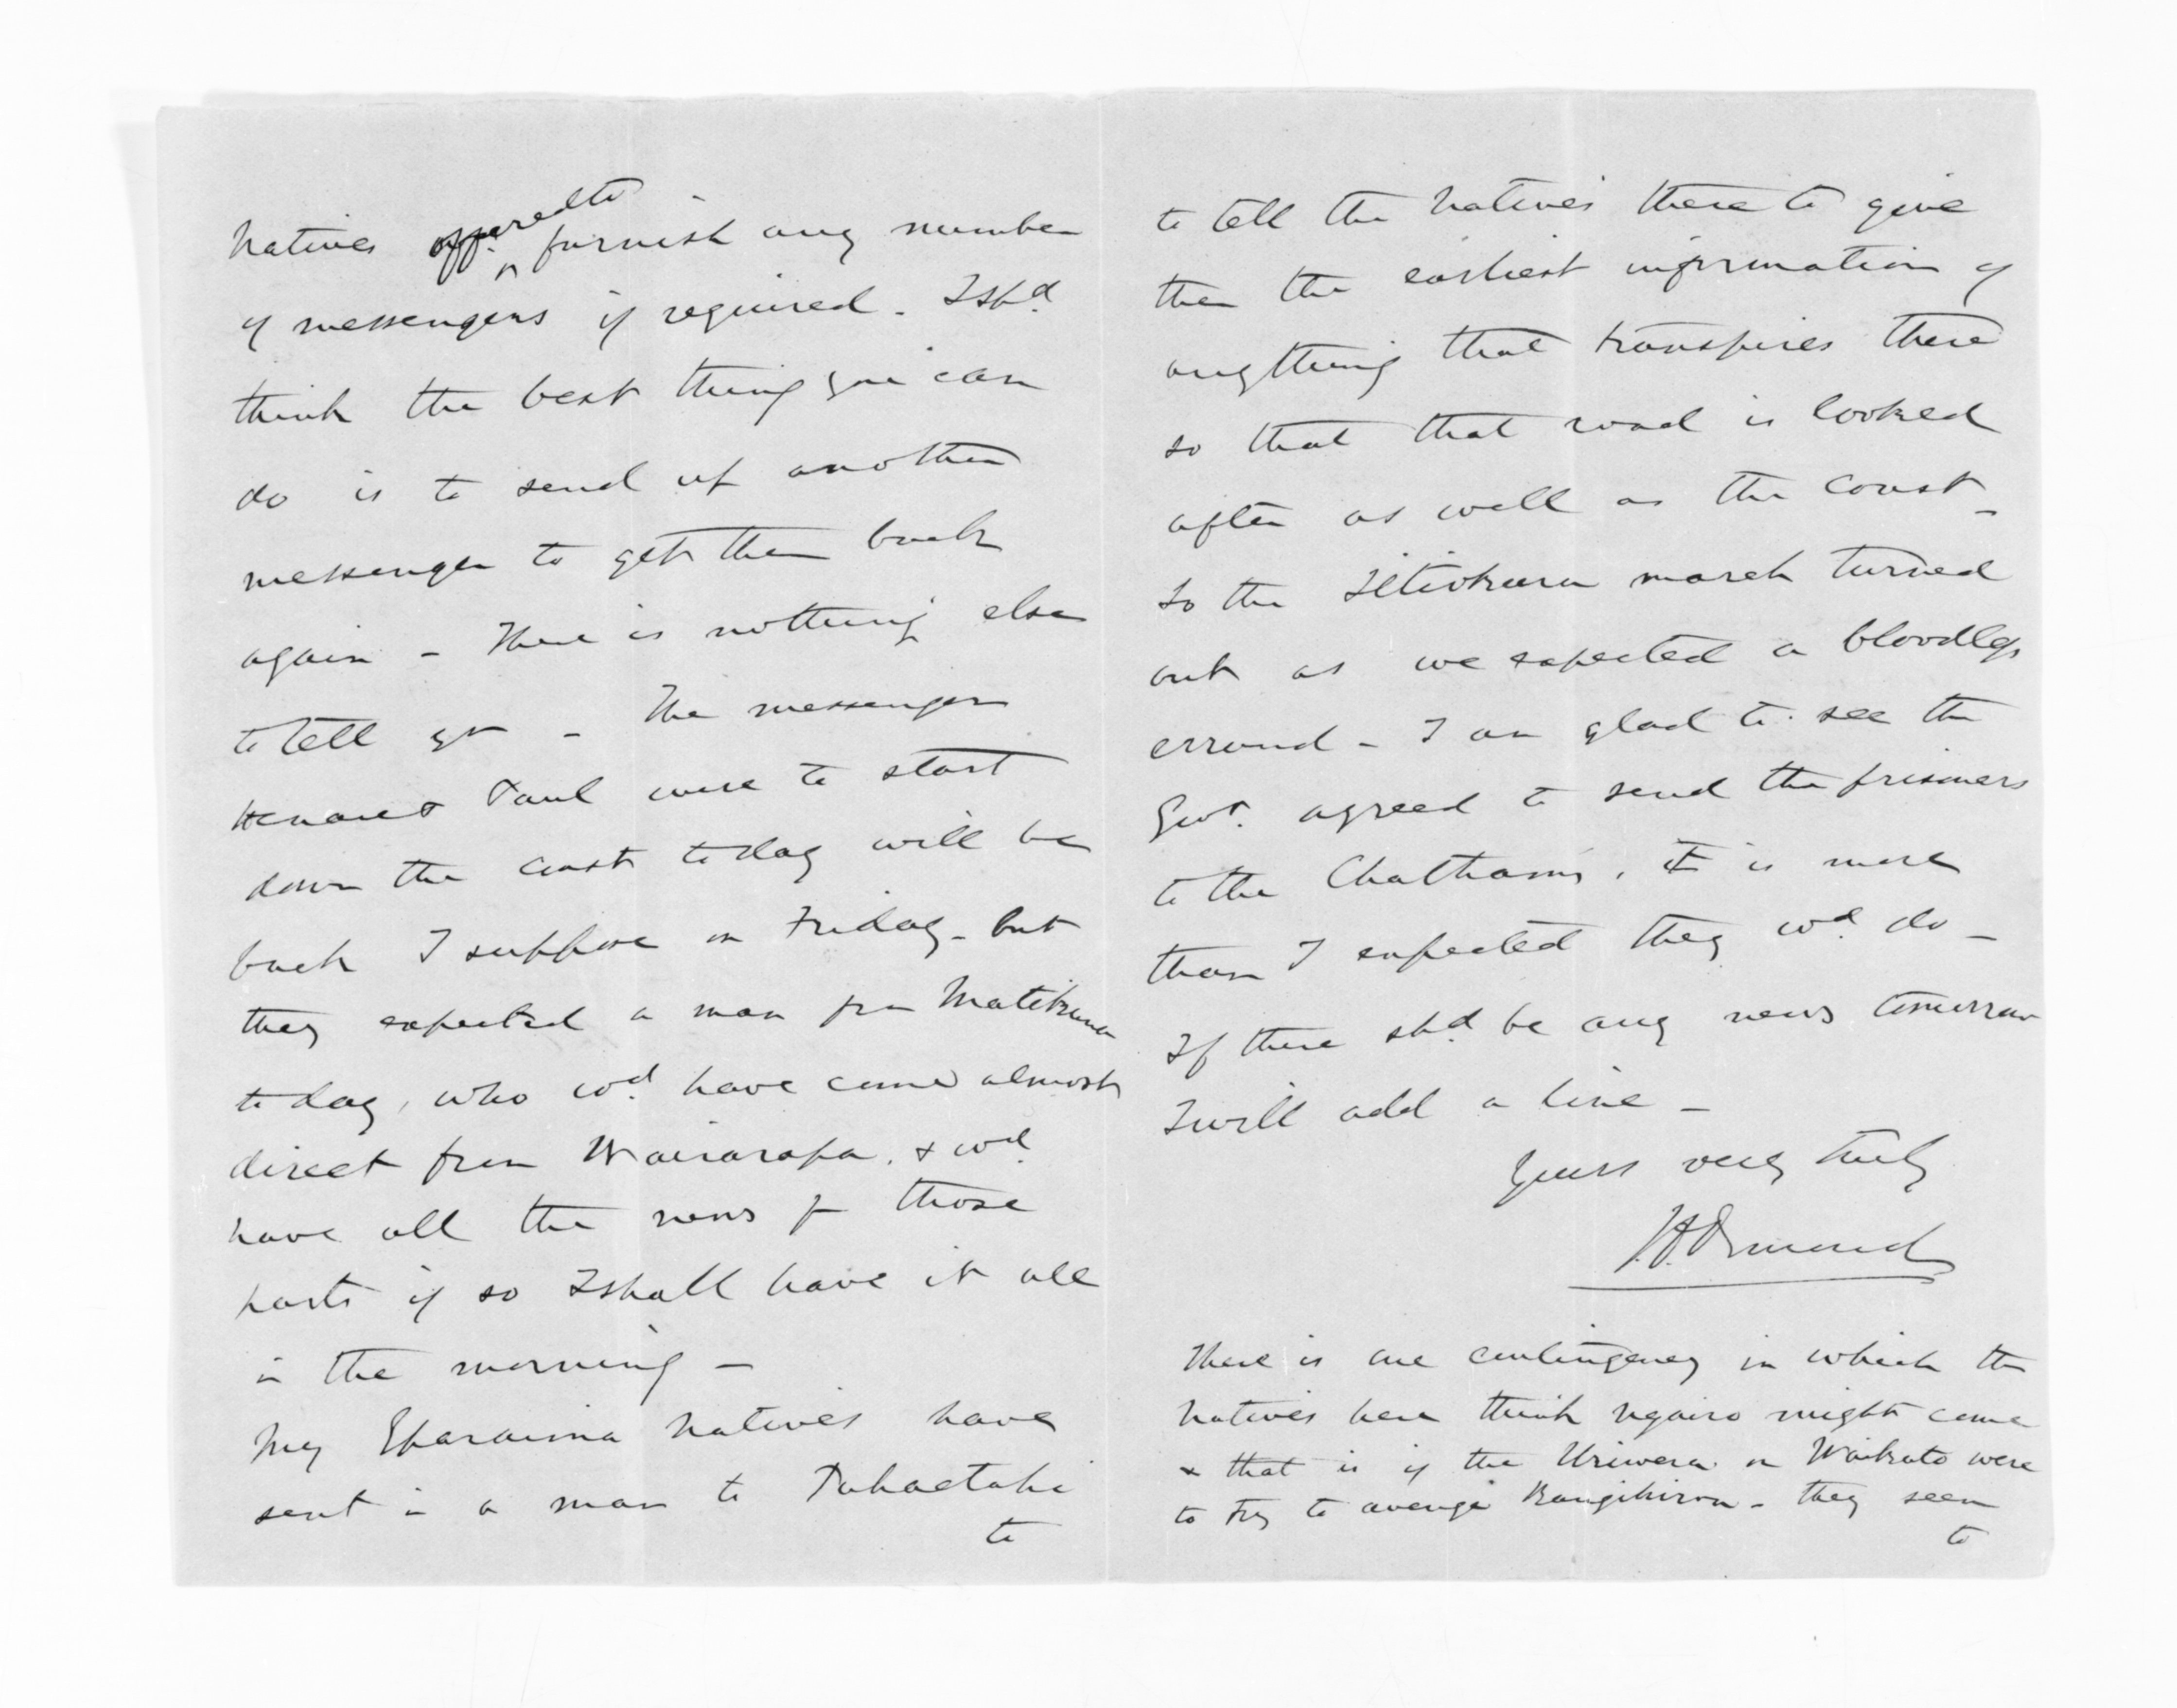 Natives offered to furnish any number
of messengers if required. I shd
think the best thing you can
do is to send up another
messenger to get them back
again - There is nothing else
to tell yr - The messengers
Henare & Paul were to start
down the coast today will be
back I suppose on Friday - but
they expected a man from
today, who wd. have come almost
direct from Wairarapa. & wd.
have all the news fr those
parts if so I shall have it all
in the morning -
My Eparaima natives have
sent in a man to
to
to tell the Natives there to give
them the earliest information of
anything that transpires there
so that that road is looked
after as well as the coast -
So the march turned
out as we expected a bloodless
errand - I am glad to see the
Govt. agreed to send the prisoners
to the Chathams, it is more
than I expected they wd do -
If there shd. be any news tomorrow
I will add a line -
Yours very truly
J.D. Ormond
There is one contingency in which the
Natives here think Ngairo might come
& that is if the Uriwera or Waikato were
to try to avenge Rangihiroa - they seem
to